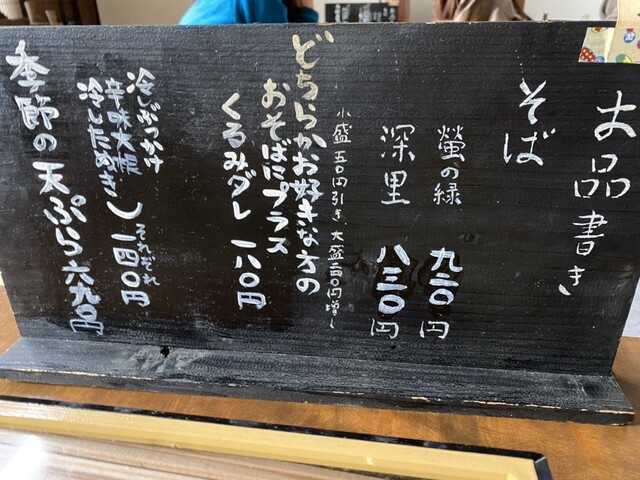 お品書き
そば
螢の緑 九三〇円
深里 八三〇円
小盛 五〇円引き 大盛 二四〇円増し
どちらかお好きな方の
おそばにプラス
くるみダレ 一八〇円
冷しぶっかけ
辛味大根
冷したぬき
それぞれ
一四〇円
季節の天ぷら 六九〇円